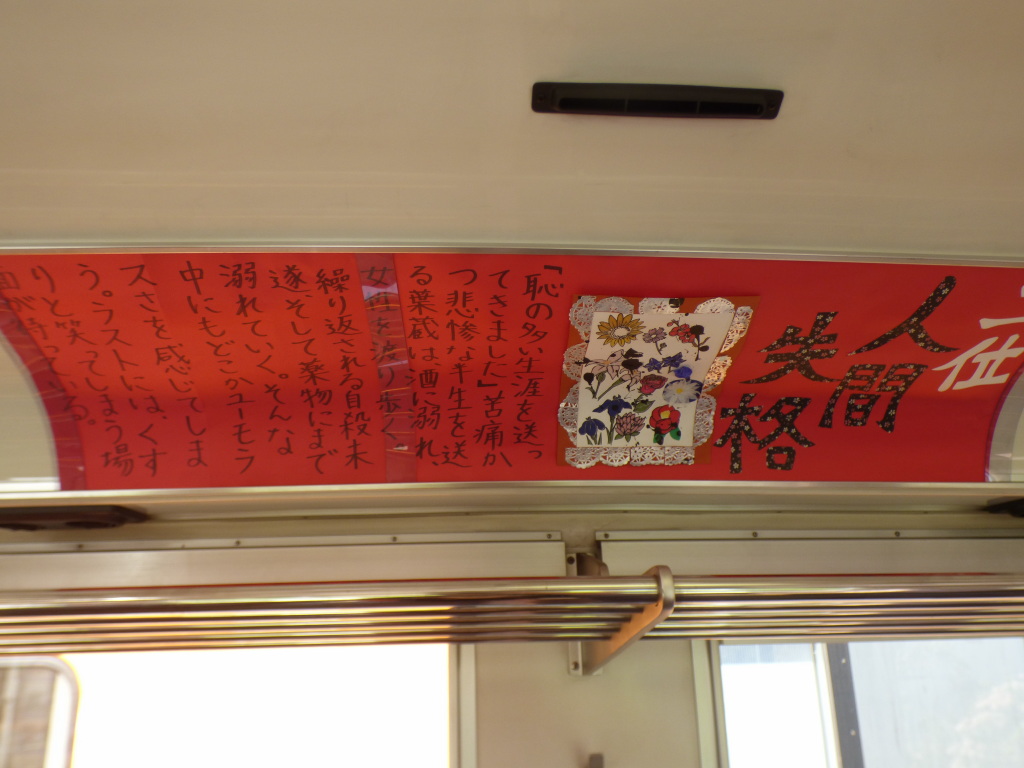 人間
失格
「恥の多い生涯を送っ
てきました」苦痛か
つ悲惨な半生を送
る葉蔵は酒に溺れ、
女性を渡り歩く。
繰り返される自殺未
遂、そして薬物にまで
溺れていく。そんな
中にもどこかユーモラ
スさを感じてしま
う。ラストには、くす
りと笑ってしまう場
面が待っている。